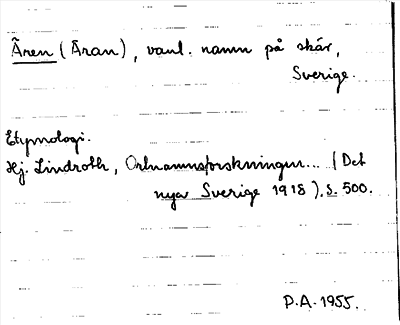 Ären (Äran), vanl. namn på skär,
Sverige.
Etymologi.
Hj. Lindroth, Ortnamnsforskningen... (Det
nya Sverige 1918), s. 500.
P.A. 1955.